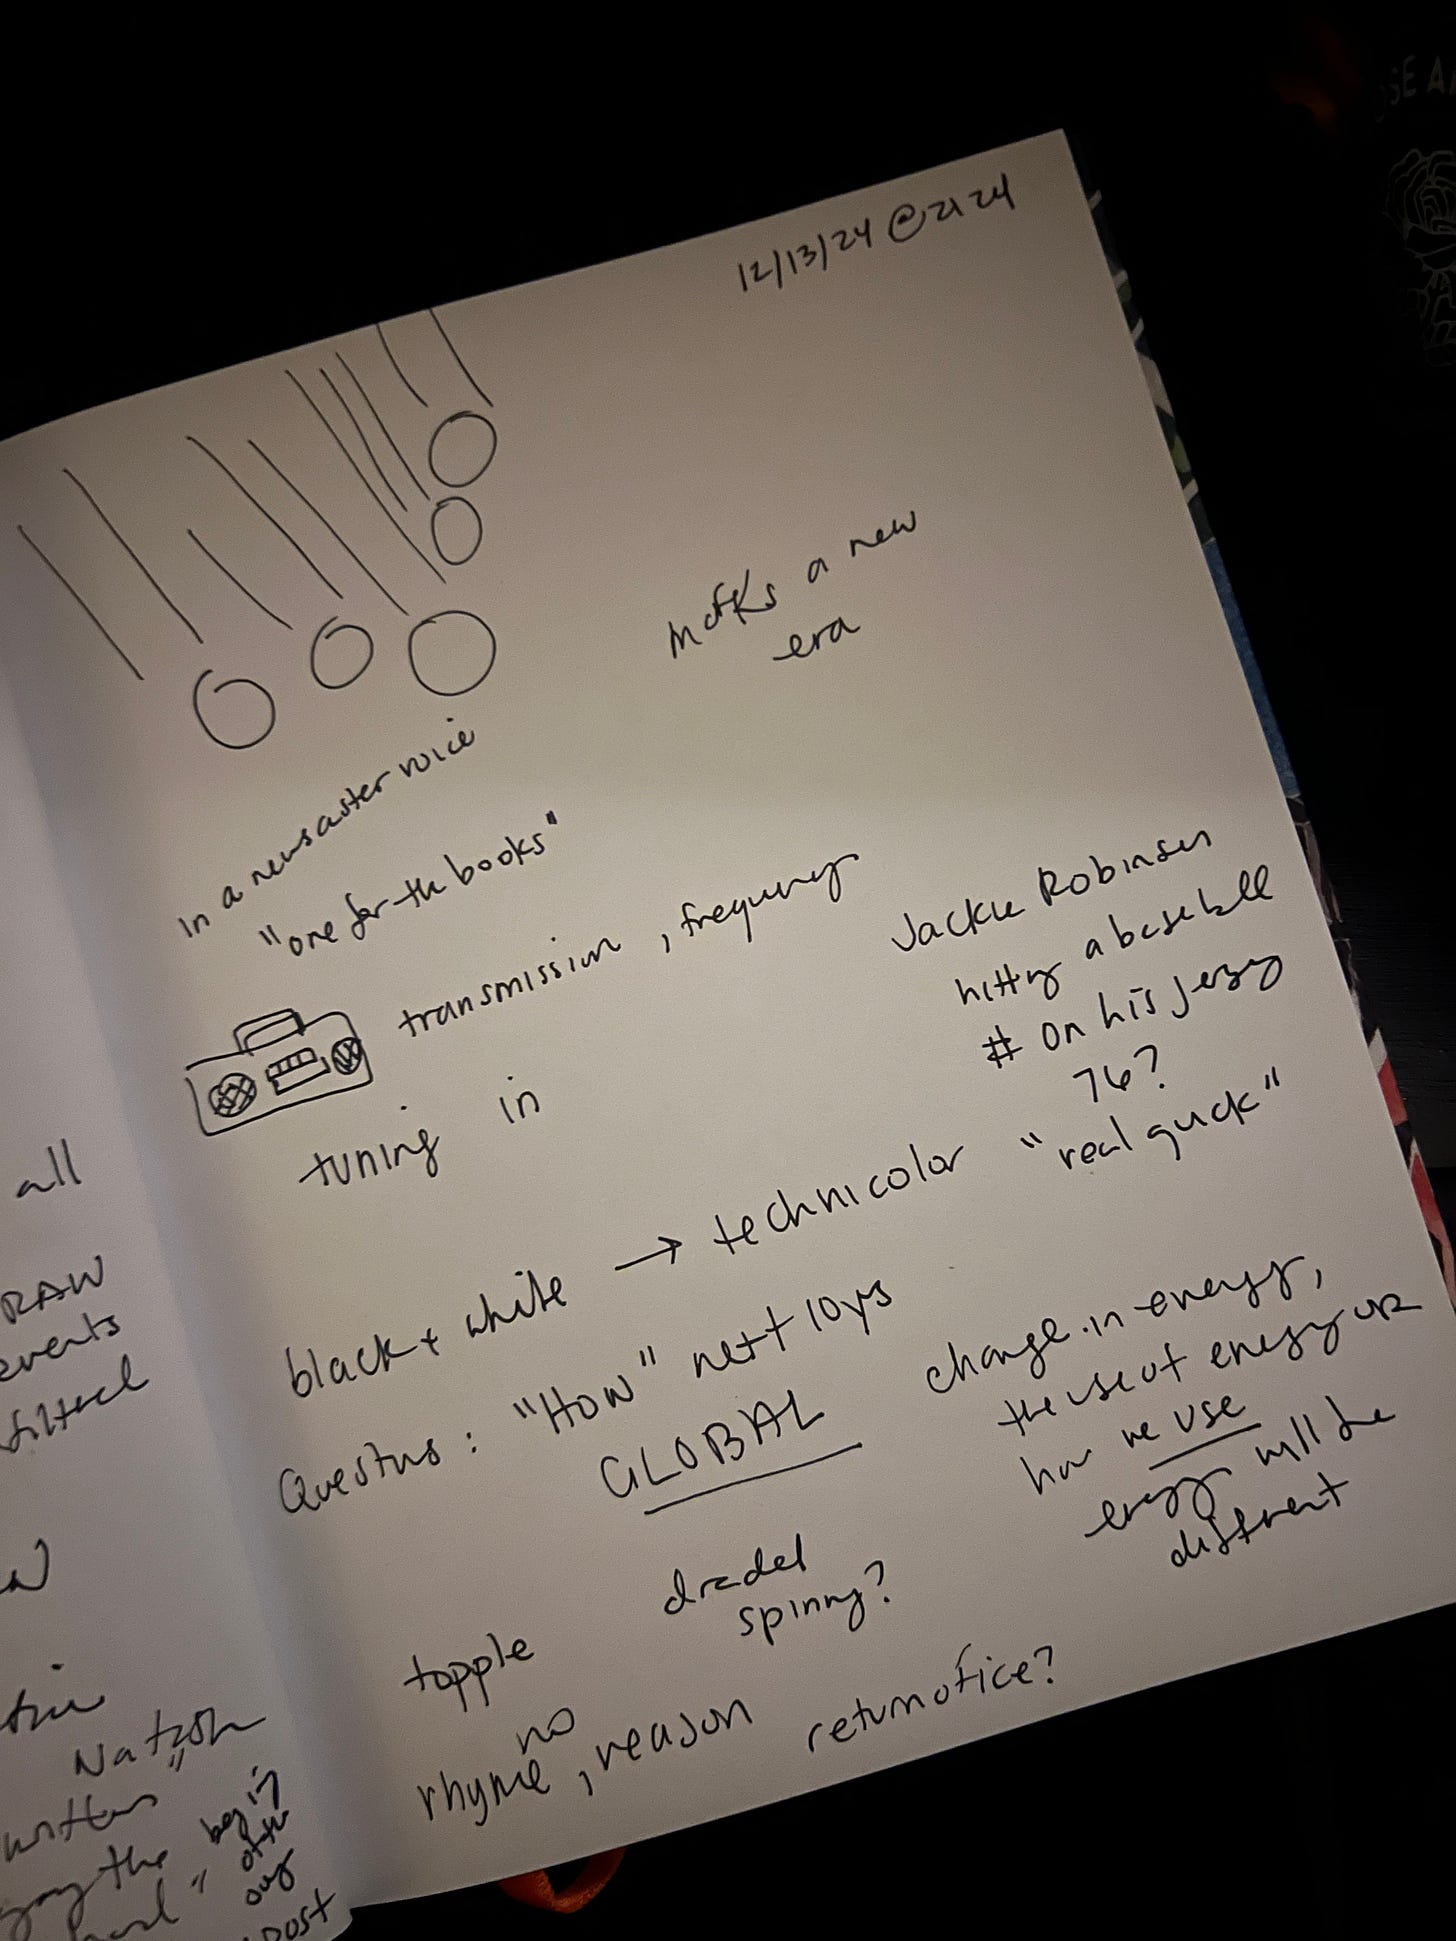 12/13/24 @ 2124
marks a new
era
in a newsaster voice
"one for the books"
transmission, frequency
Jackie Robinson
hitting a baseball
# on his jersey
76?
tuning in
black + white → technicolor "real quick"
Questions: "HOW" next 10yrs
GLOBAL
change in energy,
the use of energy or
how we use
energy will be
different
dradel
spinning?
topple
no
rhyme, reason
return of ice?
all
RAW
events
Nation
written"
the
begin
of the
post
OSE A